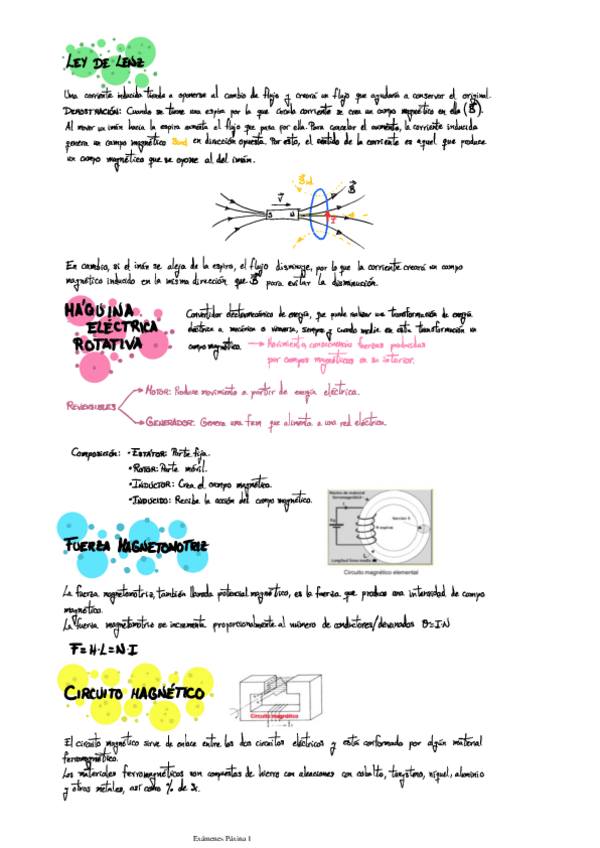 LEY DE LENZ
Una corriente inducida tiende a oponerse al cambio de flujo y creará un flujo que ayudaría a conservar el original.
DEMOSTRACIÓN: Cuando se tiene una espira por la que circula corriente se crea un campo magnético en ella (B).
Al mover un imán hacia la espira aumenta el flujo que pasa por ella. Para cancelar el aumento, la corriente inducida
genera un campo magnético Bind en dirección opuesta. Por esto, el sentido de la corriente es aquel que produce
un campo magnético que se opone al del imán.
Bind
B
V
S N
I
En cambio, si el imán se aleja de la espira, el flujo disminuye, por lo que la corriente creará un campo
magnético inducido en la misma dirección que B para evitar la disminución.
MÁQUINA
ELÉCTRICA
ROTATIVA
Convertidor electromecánico de energía, que puede realizar una transformación de energía
eléctrica a mecánica o viceversa, siempre y cuando medie en esta transformación un
campo magnético. → Movimiento consecuencia fuerzas producidas
por campos magnéticos en su interior.
REVERSIBLES
MOTOR: Produce movimiento a partir de energía eléctrica.
GENERADOR: Genera una fem que alimenta a una red eléctrica.
Composición: • ESTATOR: Parte fija.
• ROTOR: Parte móvil.
• INDUCTOR: Crea el campo magnético.
• INDUCIDO: Recibe la acción del campo magnético.
Núcleo de material
ferromagnético
Sección S
N espiras
L
Longitud línea media
Circuito magnético elemental
FUERZA MAGNETOMOTRIZ
La fuerza magnetomotriz, también llamada potencial magnético, es la fuerza que produce una intensidad de campo
magnético.
La fuerza magnetomotriz se incrementa proporcionalmente al número de conductores/devanados θ=I·N
F=H·L=N·I
CIRCUITO MAGNÉTICO
Circuito magnético
El circuito magnético sirve de enlace entre los dos circuitos eléctricos y está conformado por algún material
ferromagnético.
Los materiales ferromagnéticos son compuestos de hierro con aleaciones con cobalto, tungsteno, níquel, aluminio
y otros metales, así como % de
Exámenes Página 1